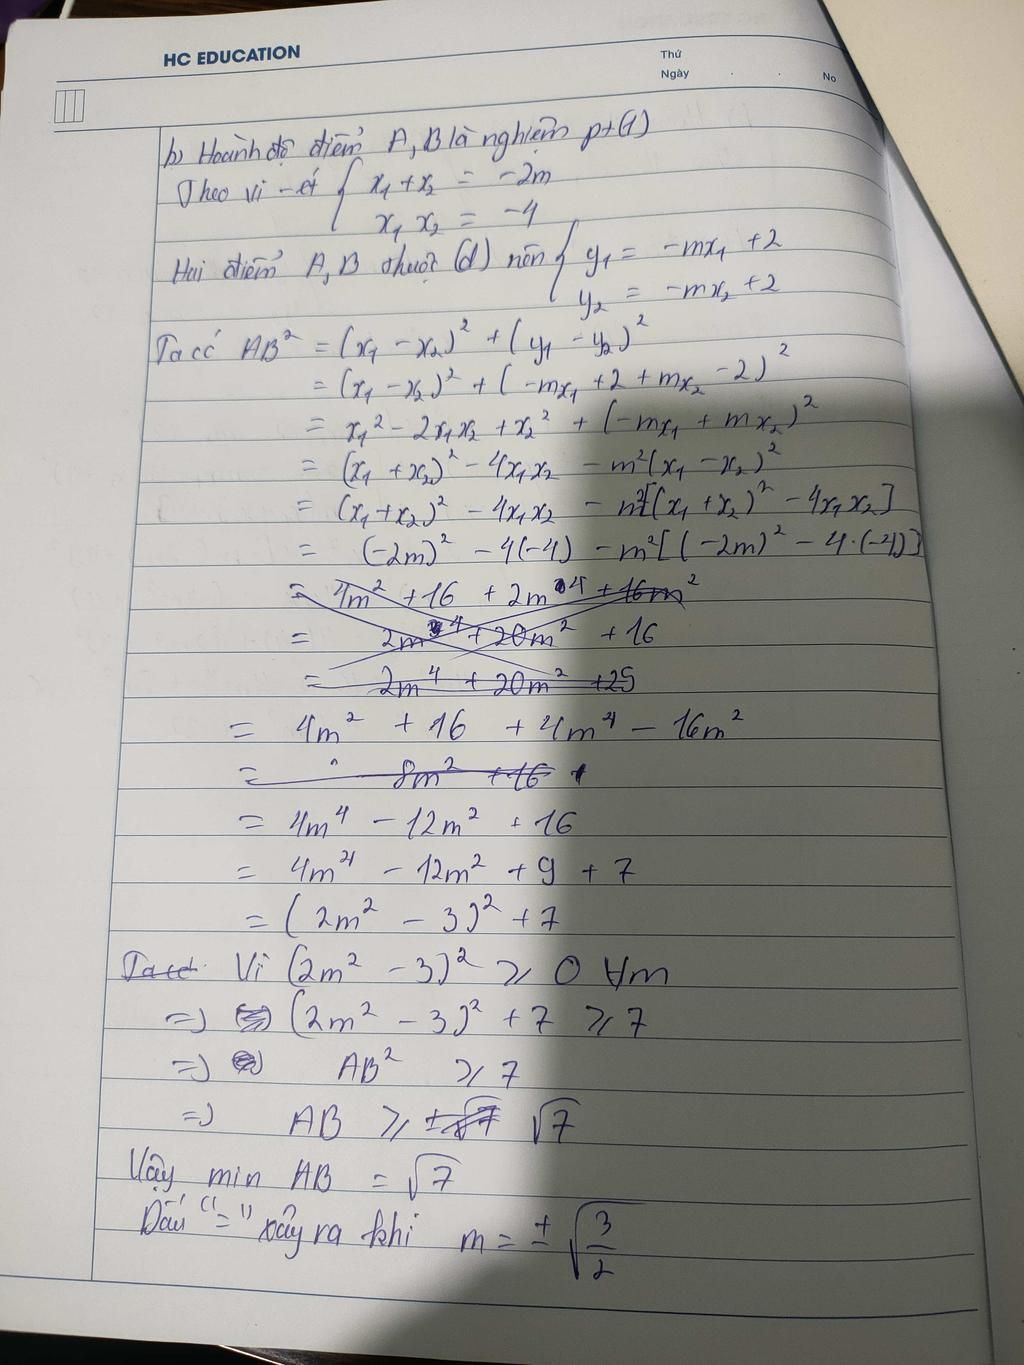 HC EDUCATION
Thứ
Ngày . . No
b) Hoành độ điểm A, B là nghiệm pt (1)
Theo vi-ét { x₁ + x₂ = -2m
x₁ x₂ = -4
Hai điểm A, B thuộc (d) nên { y₁ = -mx₁ + 2
y₂ = -mx₂ + 2
Ta có AB² = (x₁ - x₂)² + (y₁ - y₂)²
= (x₁ - x₂)² + (-mx₁ + 2 + mx₂ - 2)²
= x₁² - 2x₁x₂ + x₂² + (-mx₁ + mx₂)²
= (x₁ + x₂)² - 4x₁x₂ - m²(x₁ - x₂)²
= (x₁ + x₂)² - 4x₁x₂ - m²[(x₁ + x₂)² - 4x₁x₂]
= (-2m)² - 4(-4) - m²[(-2m)² - 4.(-4)]
= 4m² + 16 + 2m⁴ + 16m²
= 2m⁴ + 20m² + 16
= 2m⁴ + 20m² + 25
= 4m² + 16 + 4m⁴ - 16m²
= 8m² + 16
= 4m⁴ - 12m² + 16
= 4m⁴ - 12m² + 9 + 7
= (2m² - 3)² + 7
Ta có Vì (2m² - 3)² ⩾ 0 ∀m
=> (2m² - 3)² + 7 ⩾ 7
=> AB² ⩾ 7
=> AB ⩾ ±√7 √7
Vậy min AB = √7
Dấu "=" xảy ra khi m = ± √(3/2)